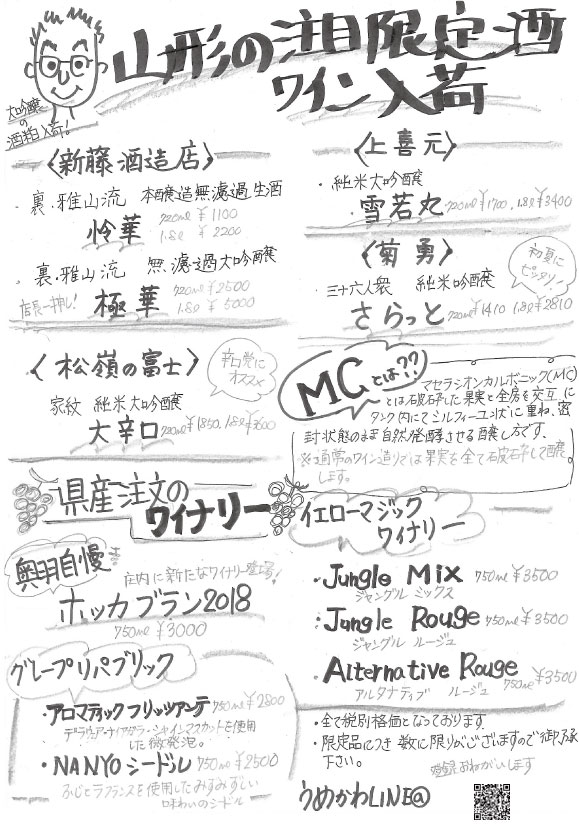 山形の注目限定酒
ワイン入荷
大吟醸
の
酒粕入荷!
〈新藤酒造店〉
・裏・雅山流 本醸造無濾過生酒
怜華 720ml ¥1100
1.8l ¥2200
・裏・雅山流 無濾過大吟醸
店長一押し! 極華 720ml ¥2500
1.8l ¥5000
〈松嶺の富士〉
辛口党に
オススメ
家紋 純米大吟醸
大辛口 720ml ¥1850. 1.8l ¥3600
〈上喜元〉
・純米大吟醸
雪若丸 720ml ¥1700. 1.8l ¥3400
〈菊勇〉
初夏に
ピッタリ!
三十六人衆 純米吟醸
さらっと 720ml ¥1410 1.8l ¥2810
MCとは??
マセラシオンカルボニック(MC)
とは破砕した果実と全房を交互に
タンク内にてミルフィーユ状に重ね、密
封状態のまま自然発酵させる醸し方です。
※通常のワイン造りでは果実を全て破砕して醸
します。
県産注文の
ワイナリー
奥羽自慢
庄内に新たなワイナリー登場!
ホッカブラン2018
750ml ¥3000
グレープリパブリック
・アロマティックフリッツアンテ 750ml ¥2800
デラウェア・ナイアガラ・シャインマスカットを使用
した微発泡。
・NANYOシードル 750ml ¥2500
ふじとラフランスを使用したみずみずしい
味わいのシードル
イエローマジック
ワイナリー
・Jungle Mix 750ml ¥3500
ジャングル ミックス
・Jungle Rouge 750ml ¥3500
ジャングル ルージュ
・Alternative Rouge 750ml ¥3500
アルタナティブ ルージュ
・全て税別格価となっております。
・限定品につき数に限りがございますので御了承
下さい。
登録おねがいします
うめかわLINE@